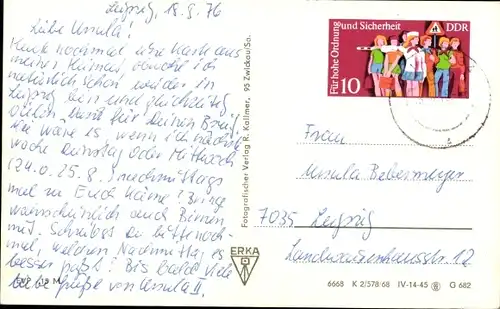 Leipzig, 18.8.76
Liebe Ursula!
Heute noch mal eine Karte aus
meiner Heimat, obwohl ich
natürlich schon wieder in
Leipzig bin und gleichzeitig
vielen Dank für deinen Brief.
Wie wäre es wenn ich nächste
Woche Dienstag oder Mittwoch
(24. o. 25.8.) nachmittags
mal zu Euch käme? Bringe
wahrscheinlich auch Birnen
mit. Schreibst du bitte noch
mal, welcher Nachmittag es
besser paßt? Bis bald viele
liebe Grüße von Ursula II.
Fotografischer Verlag R. Kallmer, 95 Zwickau/Sa.
ERKA
Für hohe Ordnung und Sicherheit
DDR
10
Frau
Ursula
7035 Leipzig
12
6668 K 2/578/68 IV-14-45 G 682